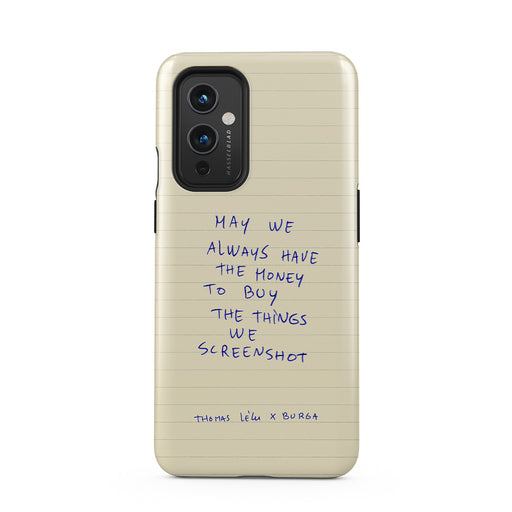 HASSELBLAD
MAY WE
ALWAYS HAVE
THE MONEY
TO BUY
THE THiNGS
WE
SCREENSHOT
THOMAS LÉLU X BURGA